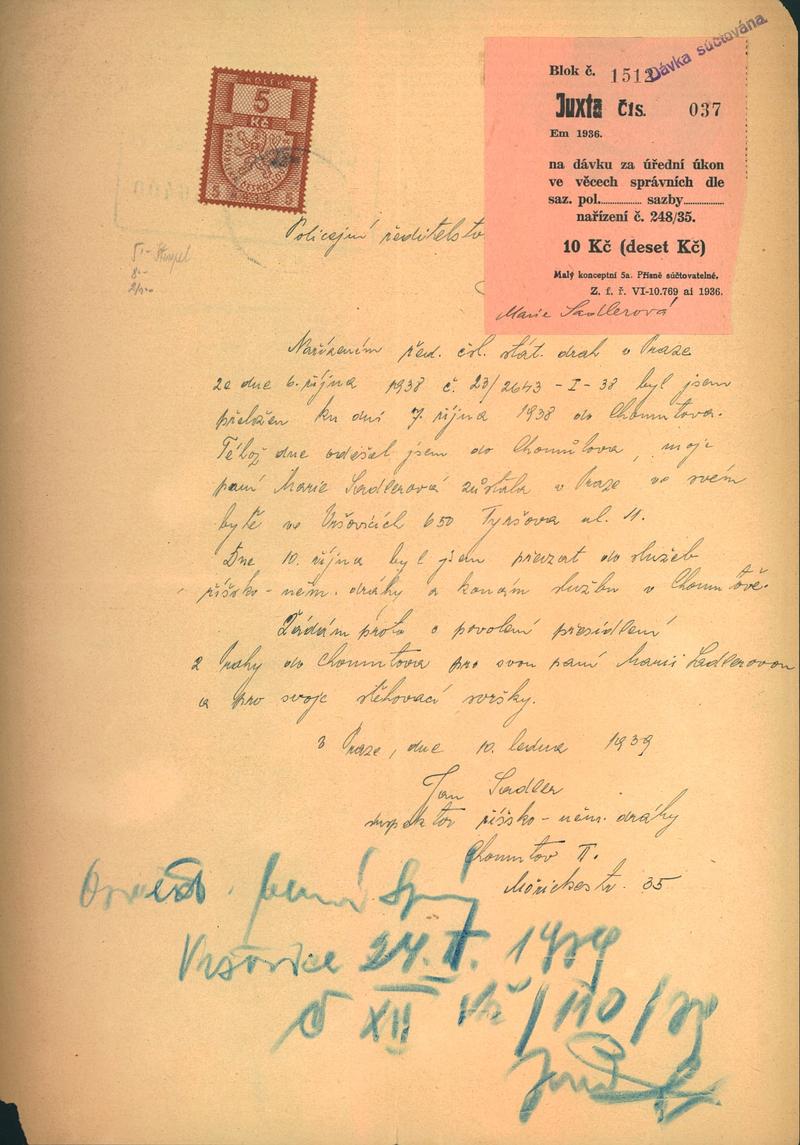 Dávka súčtována.
KOLEK
5
Kč
Blok č. 1512
Juxta čís. 037
Em 1936.
na dávku za úřední úkon
ve věcech správních dle
saz. pol............ sazby............
nařízení č. 248/35.
10 Kč (deset Kč)
Malý konceptní 5a. Přísně súčtovatelné.
Z. f. ř. VI-10.769 ai 1936.
Marie Sadlerová
Policejní ředitelstv
Nařízením řed. čsl. stát. drah v Praze
ze dne 6. října 1938 č. 23/2643 - I - 38 byl jsem
přeložen ku dni 7. října 1938 do Chomutova.
Téhož dne odešel jsem do Chomůtova, moje
paní Marie Sadlerová zůstala v Praze ve svém
bytě ve Vršovicích 650 Tyršova ul. 11.
Dne 10. října byl jsem převzat do služeb
říšsko - něm. dráhy a konám službu v Chomutově.
Žádám proto o povolení přesídlení
z Prahy do Chomutova pro svou paní Marii Sadlerovou
a pro svoje stěhovací svršky.
V Praze, dne 10. ledna 1939
Jan Sadler
inspektor říšsko - něm. dráhy
Chomutov II.
35
Vršovice 24. 1939
č XII /110/39